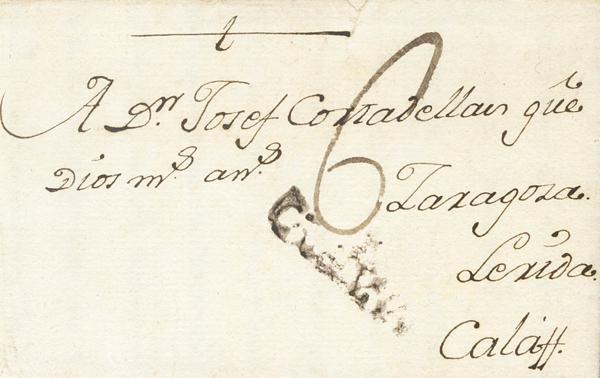 6
A Dn. Josef Cortadellas que
Dios ms. ans. Zaragoza.
Lerida.
Calaff.